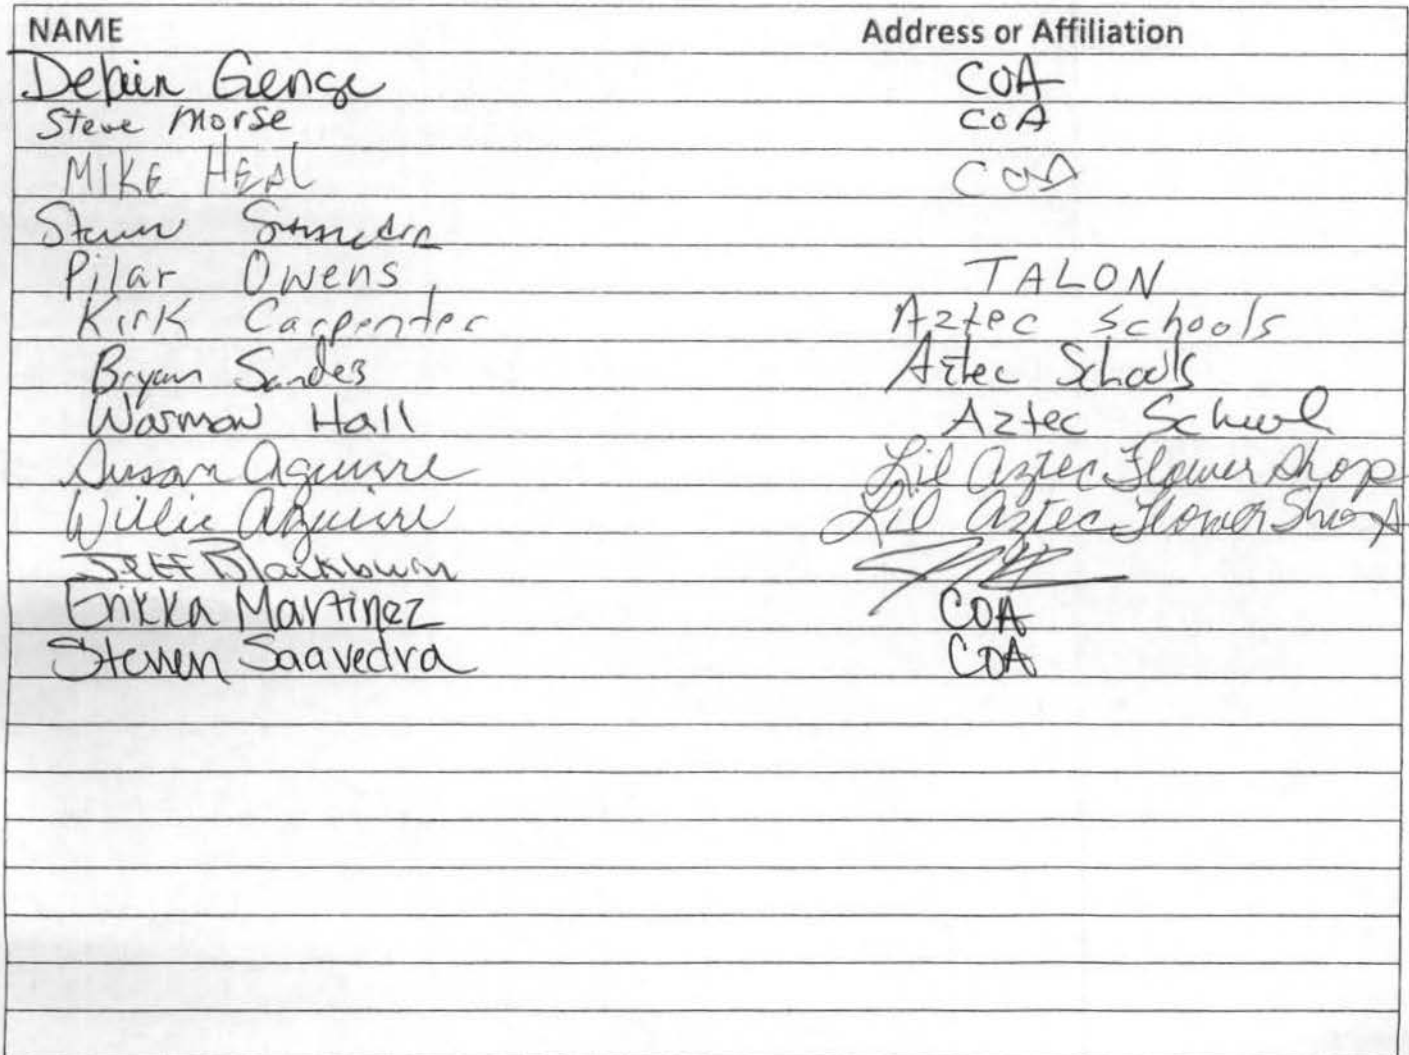 NAME Address or Affiliation
Genge COA
Steve Morse COA
MIKE HEAL COA
Pilar Owens TALON
Kirk Carpenter Aztec Schools
Bryan Sandez Aztec Schools
Warman Hall Aztec School
Susan Aguirre Lil Aztec Flower Shop
Willie Aguirre Lil Aztec Flower Shop
Jeff Blackburn
Erikka Martinez COA
Steven Saavedra COA